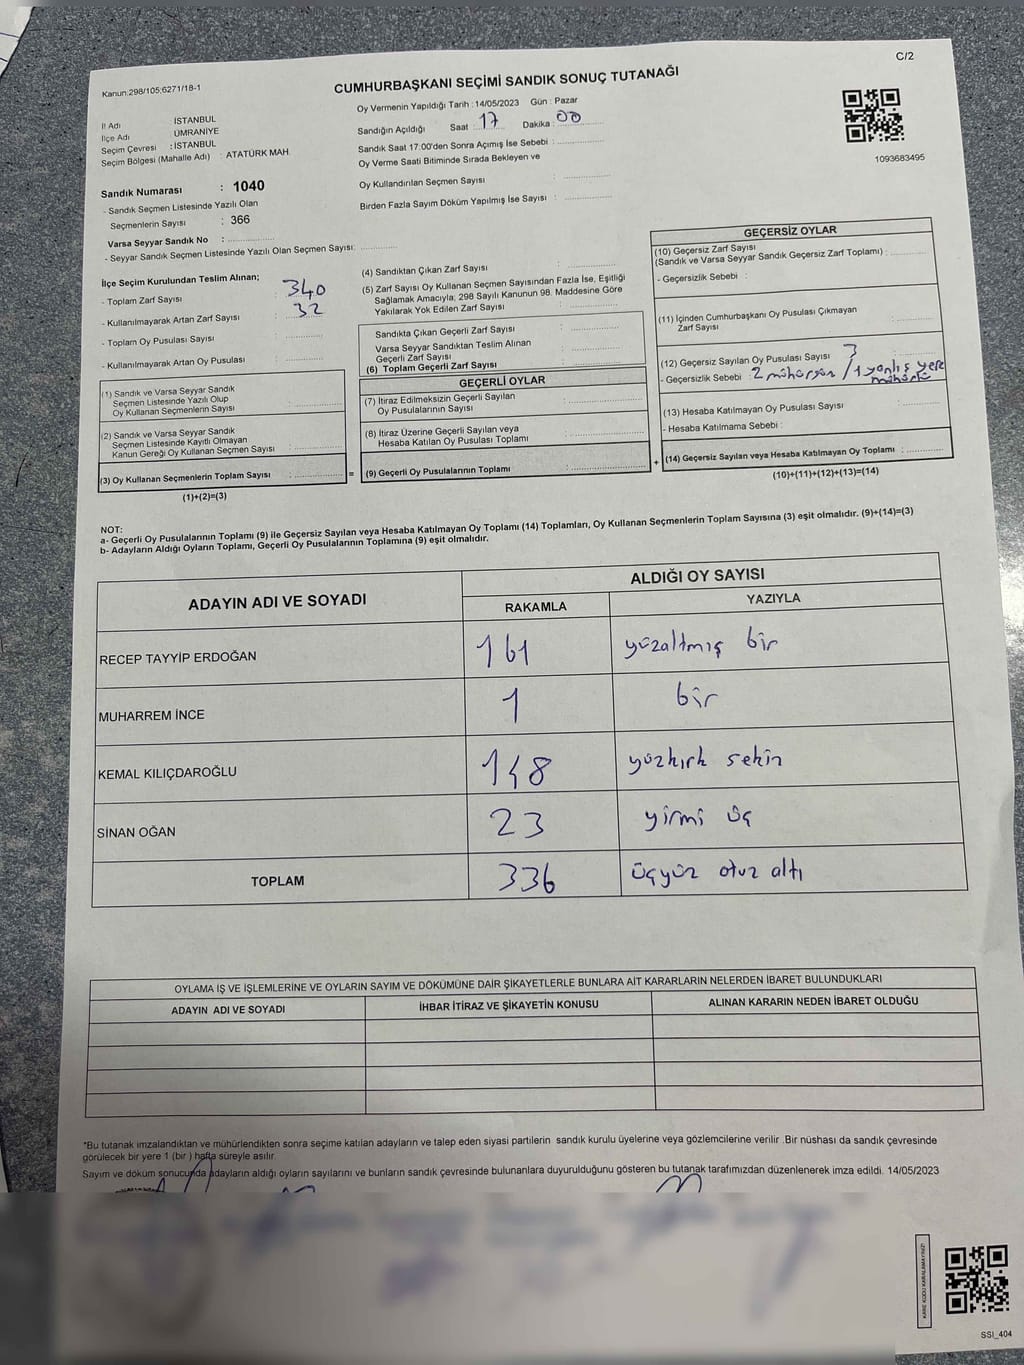 C/2
Kanun:298/105;6271/18-1
CUMHURBAŞKANI SEÇİMİ SANDIK SONUÇ TUTANAĞI
1093683495
İl Adı : İSTANBUL
İlçe Adı : ÜMRANİYE
Seçim Çevresi : İSTANBUL
Seçim Bölgesi (Mahalle Adı) : ATATÜRK MAH.
Sandık Numarası : 1040
- Sandık Seçmen Listesinde Yazılı Olan
Seçmenlerin Sayısı : 366
Varsa Seyyar Sandık No : ..............
- Seyyar Sandık Seçmen Listesinde Yazılı Olan Seçmen Sayısı: ............
Oy Vermenin Yapıldığı Tarih : 14/05/2023 Gün : Pazar
Sandığın Açıldığı Saat : 17 Dakika : 00
Sandık Saat 17:00'den Sonra Açımış İse Sebebi : ..............
Oy Verme Saati Bitiminde Sırada Bekleyen ve
Oy Kullandırılan Seçmen Sayısı : ..............
Birden Fazla Sayım Döküm Yapılmış İse Sayısı : ..............
İlçe Seçim Kurulundan Teslim Alınan;
- Toplam Zarf Sayısı : 340
- Kullanılmayarak Artan Zarf Sayısı : 32
- Toplam Oy Pusulası Sayısı : ..............
- Kullanılmayarak Artan Oy Pusulası : ..............
(1) Sandık ve Varsa Seyyar Sandık
Seçmen Listesinde Yazılı Olup
Oy Kullanan Seçmenlerin Sayısı : ..............
(2) Sandık ve Varsa Seyyar Sandık
Seçmen Listesinde Kayıtlı Olmayan
Kanun Gereği Oy Kullanan Seçmen Sayısı : ..............
(3) Oy Kullanan Seçmenlerin Toplam Sayısı : ..............
(1)+(2)=(3)
=
(4) Sandıktan Çıkan Zarf Sayısı : ..............
(5) Zarf Sayısı Oy Kullanan Seçmen Sayısından Fazla İse, Eşitliği
Sağlamak Amacıyla; 298 Sayılı Kanunun 98. Maddesine Göre
Yakılarak Yok Edilen Zarf Sayısı : ..............
Sandıkta Çıkan Geçerli Zarf Sayısı : ..............
Varsa Seyyar Sandıktan Teslim Alınan
Geçerli Zarf Sayısı : ..............
(6) Toplam Geçerli Zarf Sayısı : ..............
GEÇERLİ OYLAR
(7) İtiraz Edilmeksizin Geçerli Sayılan
Oy Pusulalarının Sayısı : ..............
(8) İtiraz Üzerine Geçerli Sayılan veya
Hesaba Katılan Oy Pusulası Toplamı : ..............
(9) Geçerli Oy Pusulalarının Toplamı : ..............
+
GEÇERSİZ OYLAR
(10) Geçersiz Zarf Sayısı
(Sandık ve Varsa Seyyar Sandık Geçersiz Zarf Toplamı) : ..............
- Geçersizlik Sebebi :
(11) İçinden Cumhurbaşkanı Oy Pusulası Çıkmayan
Zarf Sayısı : ..............
(12) Geçersiz Sayılan Oy Pusulası Sayısı : 3
- Geçersizlik Sebebi : 2 mühürsüz / 1 yanlış yere mühürlü
(13) Hesaba Katılmayan Oy Pusulası Sayısı : ..............
- Hesaba Katılmama Sebebi :
(14) Geçersiz Sayılan veya Hesaba Katılmayan Oy Toplamı : ..............
(10)+(11)+(12)+(13)=(14)
NOT:
a- Geçerli Oy Pusulalarının Toplamı (9) ile Geçersiz Sayılan veya Hesaba Katılmayan Oy Toplamı (14) Toplamları, Oy Kullanan Seçmenlerin Toplam Sayısına (3) eşit olmalıdır. (9)+(14)=(3)
b- Adayların Aldığı Oyların Toplamı, Geçerli Oy Pusulalarının Toplamına (9) eşit olmalıdır.
ADAYIN ADI VE SOYADI
ALDIĞI OY SAYISI
RAKAMLA YAZIYLA
RECEP TAYYİP ERDOĞAN 161 yüzaltmış bir
MUHARREM İNCE 1 bir
KEMAL KILIÇDAROĞLU 148 yüzkırk sekiz
SİNAN OĞAN 23 yirmi üç
TOPLAM 336 üçyüz otuz altı
OYLAMA İŞ VE İŞLEMLERİNE VE OYLARIN SAYIM VE DÖKÜMÜNE DAİR ŞİKAYETLERLE BUNLARA AİT KARARLARIN NELERDEN İBARET BULUNDUKLARI
ADAYIN ADI VE SOYADI İHBAR İTİRAZ VE ŞİKAYETİN KONUSU ALINAN KARARIN NEDEN İBARET OLDUĞU
*Bu tutanak imzalandıktan ve mühürlendikten sonra seçime katılan adayların ve talep eden siyasi partilerin sandık kurulu üyelerine veya gözlemcilerine verilir .Bir nüshası da sandık çevresinde
görülecek bir yere 1 (bir ) hafta süreyle asılır.
Sayım ve döküm sonucunda adayların aldığı oyların sayılarını ve bunların sandık çevresinde bulunanlara duyurulduğunu gösteren bu tutanak tarafımızdan düzenlenerek imza edildi. 14/05/2023
KARE KODU KARALAMAYINIZ!
SSI_404